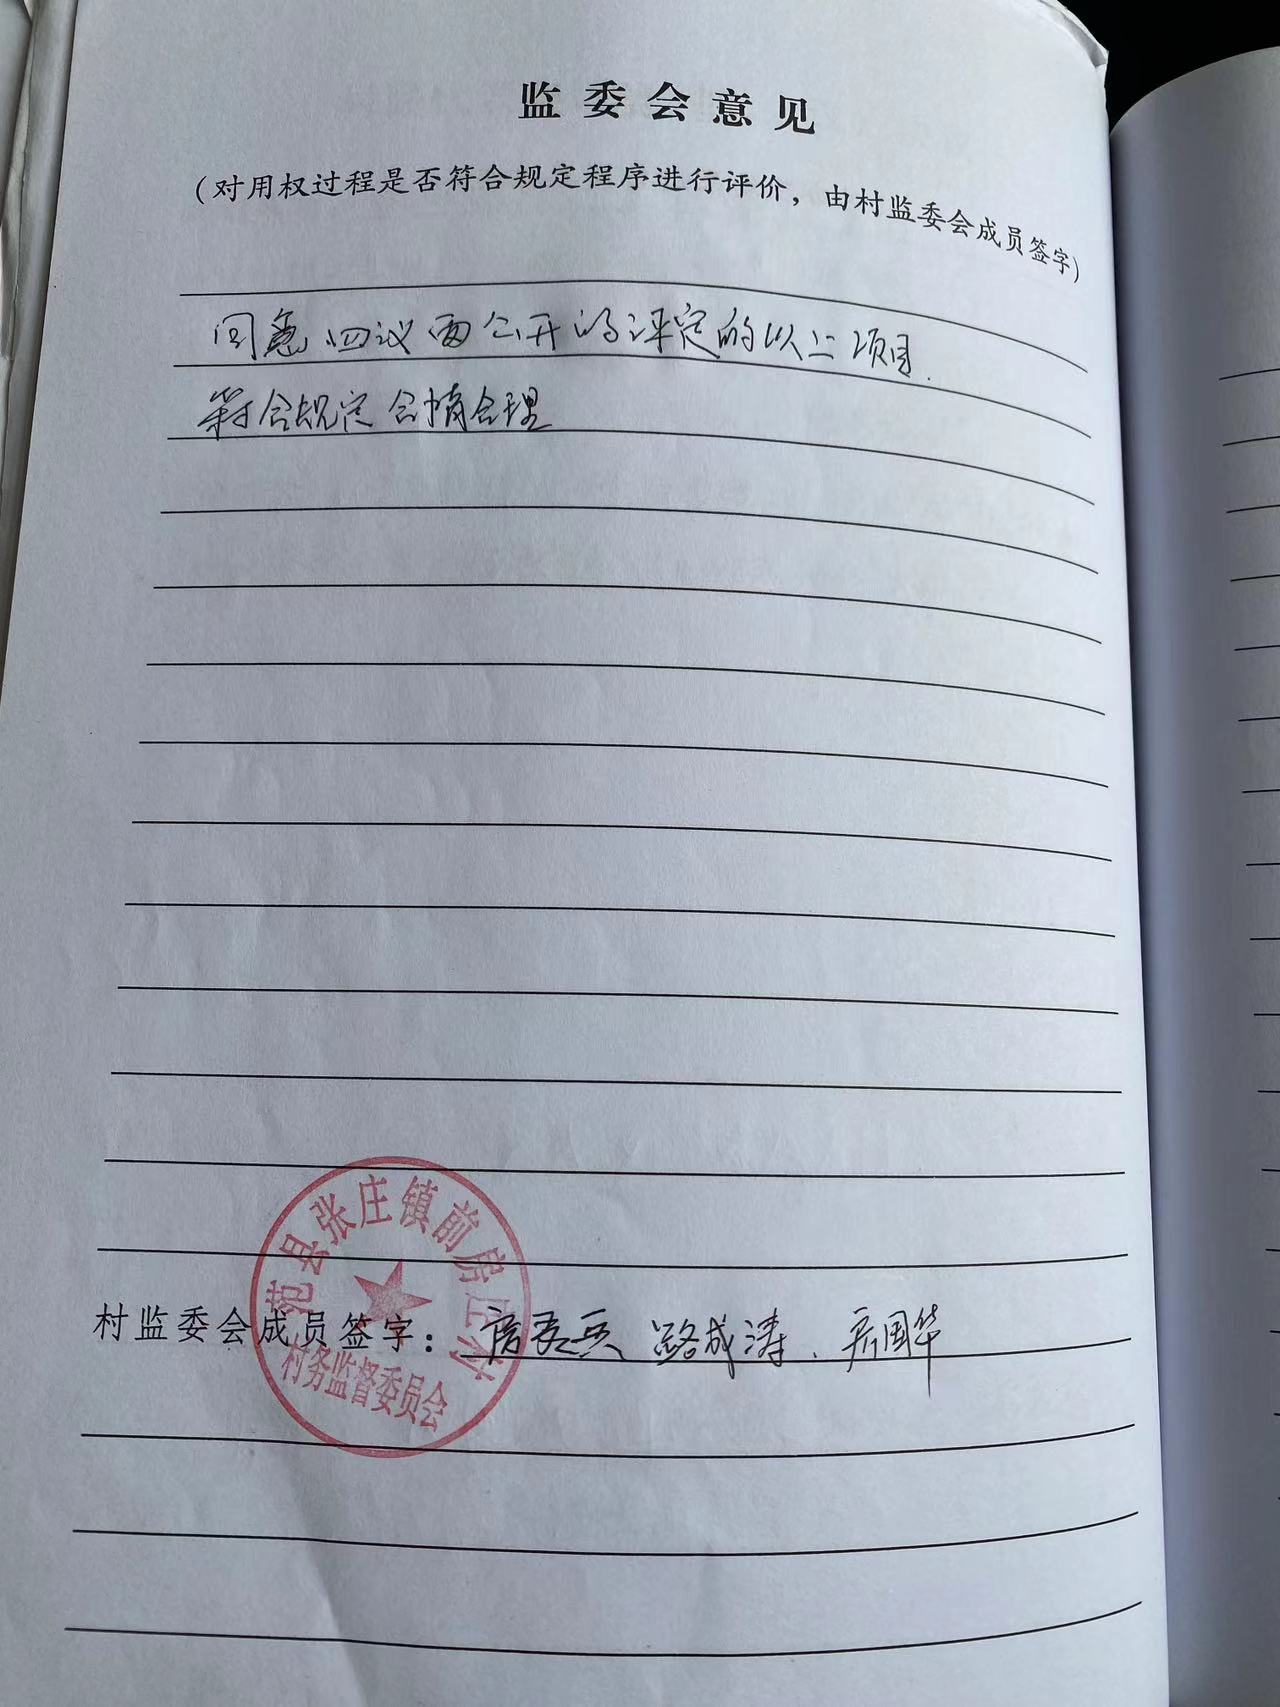 监委会意见
（对用权过程是否符合规定程序进行评价，由村监委会成员签字）
同意四议两公开的评定的以上项目.
符合规定合情合理
范县张庄镇前房庄村
村务监督委员会
村监委会成员签字： 路成涛. 房国华